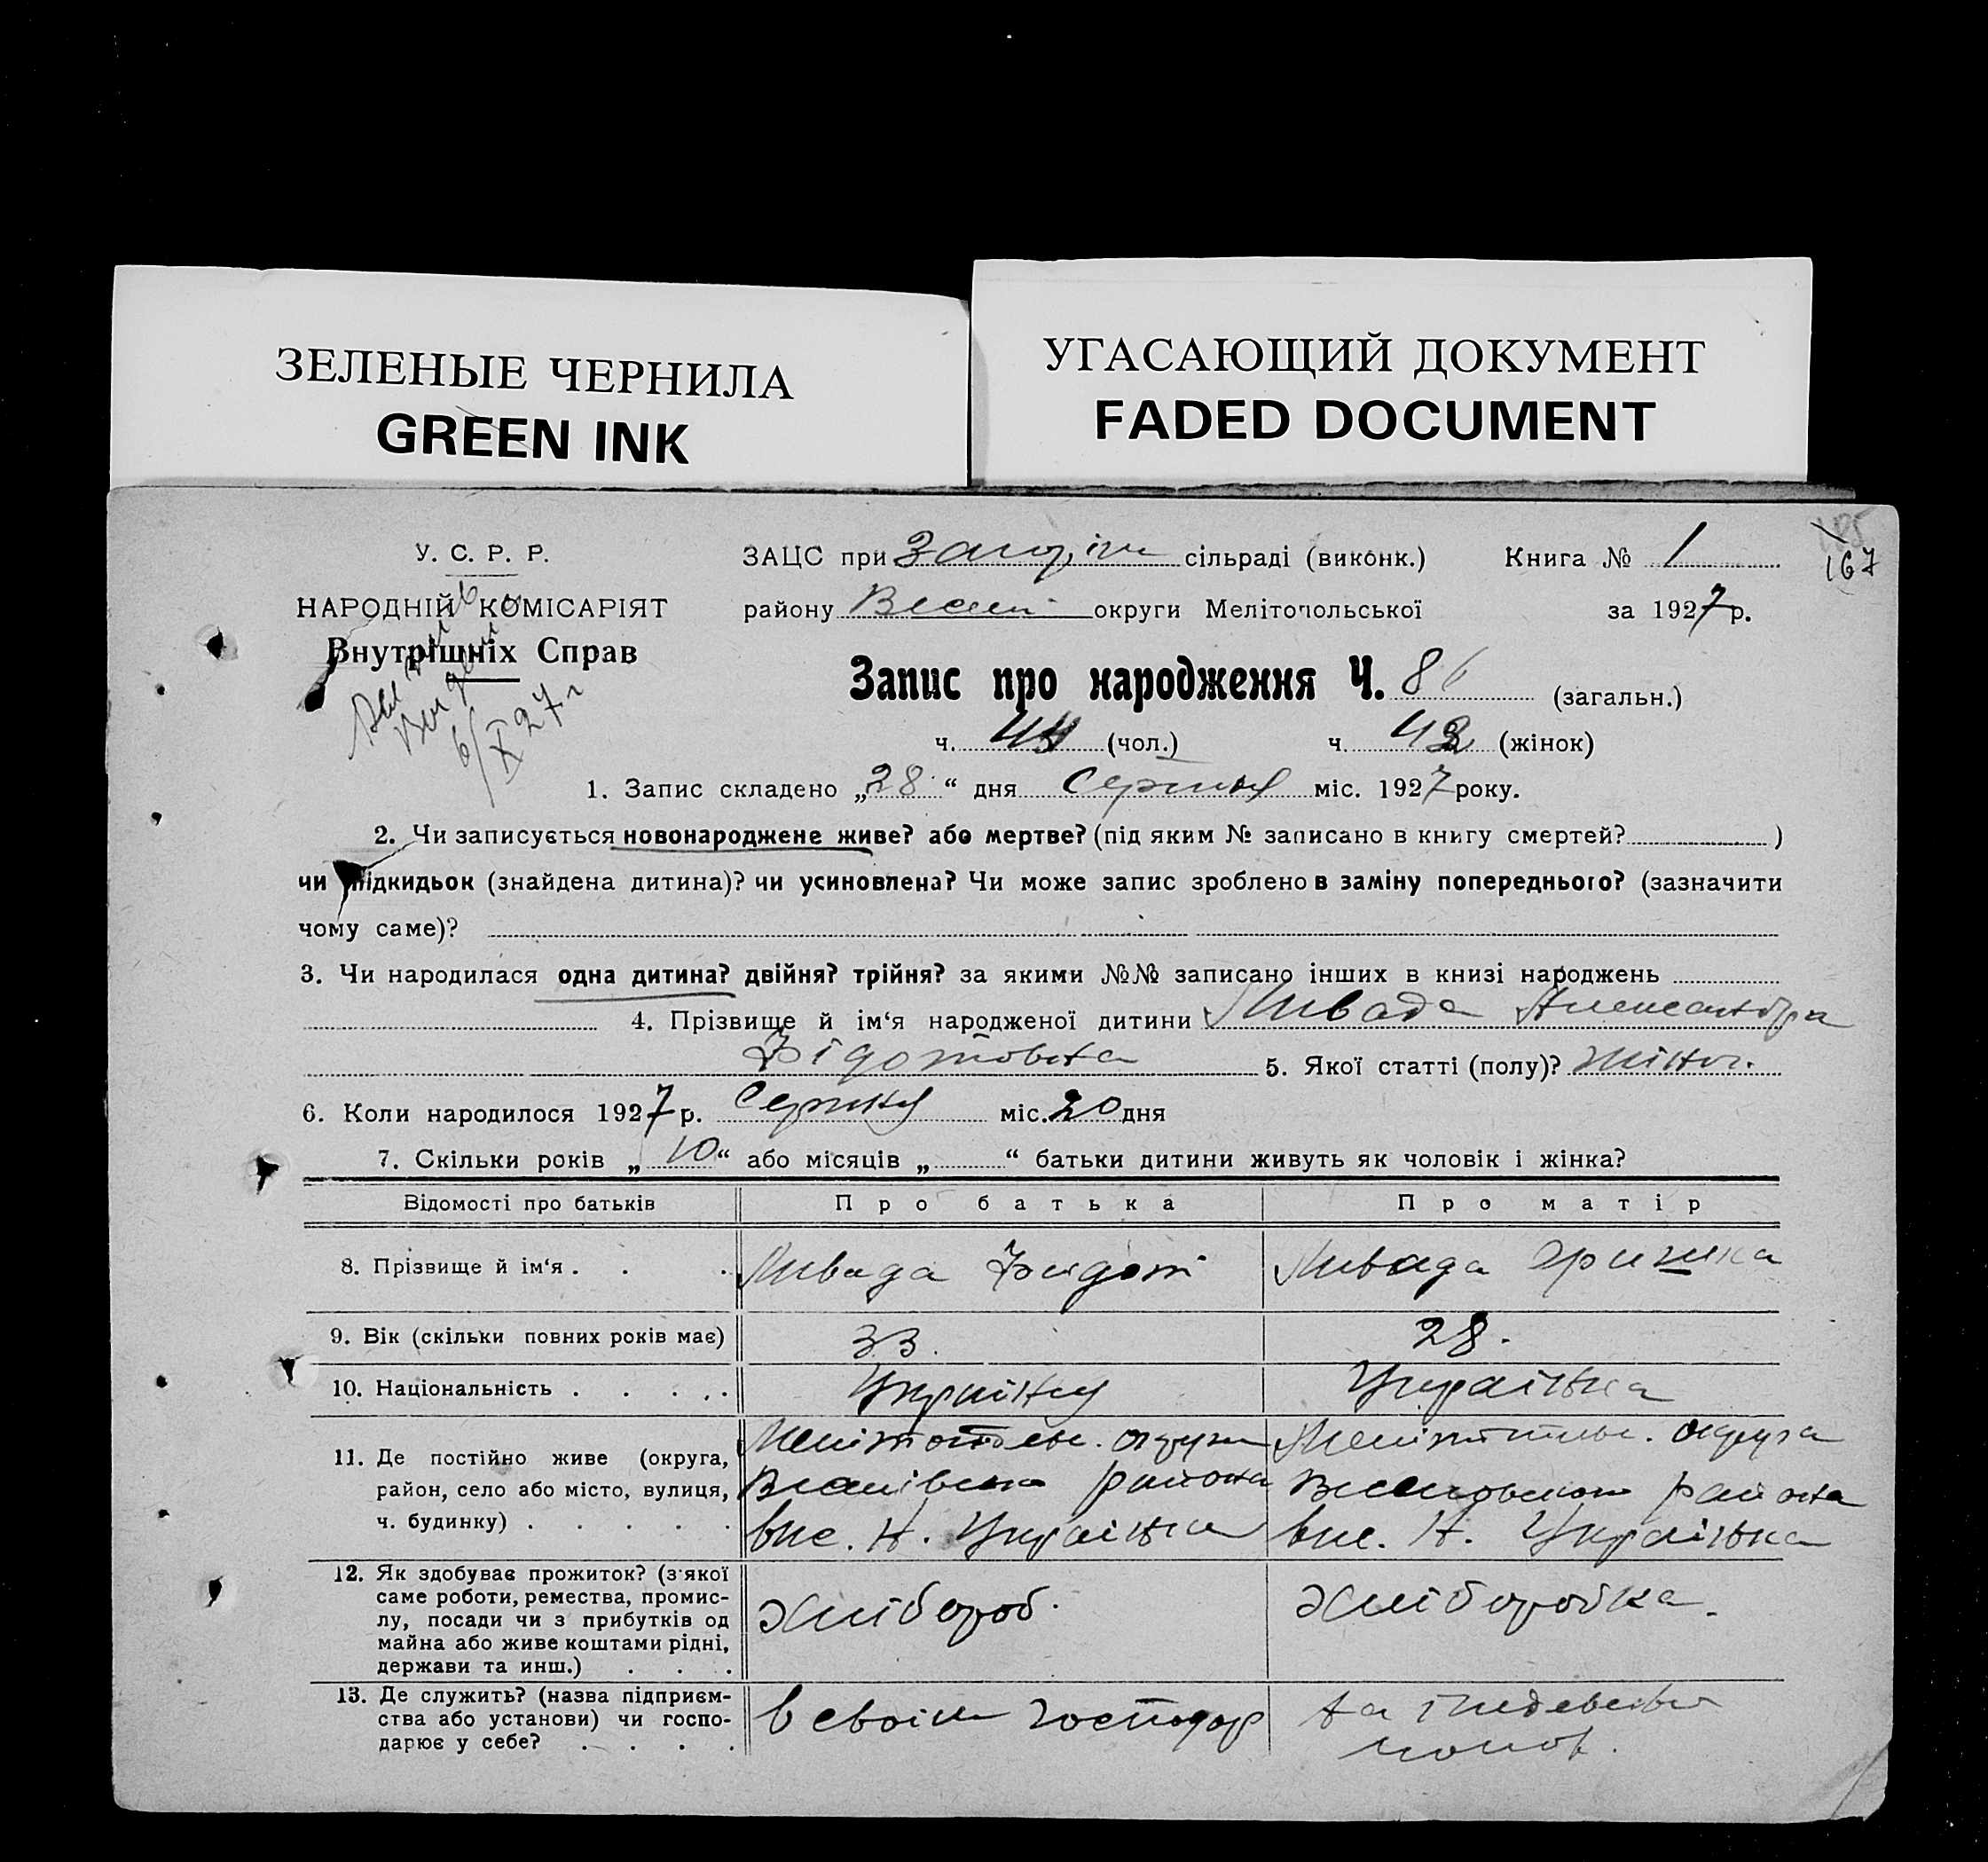 ЗЕЛЕНЫЕ ЧЕРНИЛА
GREEN INK
УГАСАЮЩИЙ ДОКУМЕНТ
FADED DOCUMENT
У. С. Р. Р.
НАРОДНІЙ КОМІСАРІЯТ
Внутрішніх Справ
6/X 27 г
ЗАЦС при сільраді (виконк.) Книга № 1
167
району округи Мелітопольської за 1927 р.
Запис про народження Ч. 86 (загальн.)
ч. 44 (чол.) ч. 42 (жінок)
1. Запис складено „28“ дня Серпня міс. 1927 року.
2. Чи записується новонароджене живе? або мертве? (під яким № записано в книгу смертей? )
чи підкидьок (знайдена дитина)? чи усиновлена? Чи може запис зроблено в заміну попереднього? (зазначити
чому саме)?
3. Чи народилася одна дитина? двійня? трійня? за якими №№ записано інших в книзі народжень
4. Прізвище й ім‘я народженої дитини Ливада Александра
Фідотовна 5. Якої статті (полу)? жіноч.
6. Коли народилося 1927 р. Серпня міс. 20 дня
7. Скільки років „10“ або місяців „ “ батьки дитини живуть як чоловік і жінка?
Відомості про батьків Про батька Про матір
8. Прізвище й ім‘я . . . Ливада Федот Ливада Оришка
9. Вік (скільки повних років має) 33. 28.
10. Національність . . . . . Українец Українка
11. Де постійно живе (округа, Мелітопольс. округа Мелітопольс. округа
район, село або місто, вулиця, района района
ч. будинку) . . . . . Н. Українка Н. Українка
12. Як здобуває прожиток? (з‘якої
саме роботи, ремества, промис-
лу, посади чи з прибутків од Хлібороб. Хліборобка.
майна або живе коштами рідні,
держави та инш.) . . .
13. Де служить? (назва підприєм-
ства або установи) чи госпо- в своім господар
дарює у себе? . . . .